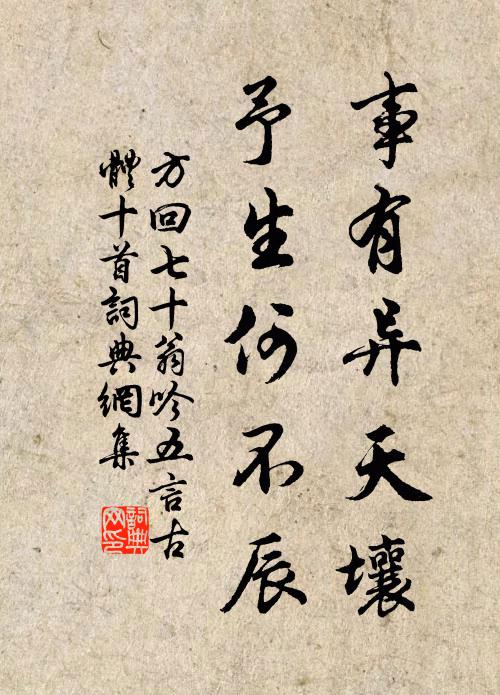 事有异天壤
予生何不辰
方回七十翁吟五言古
體十首詞典網集
詞典网印